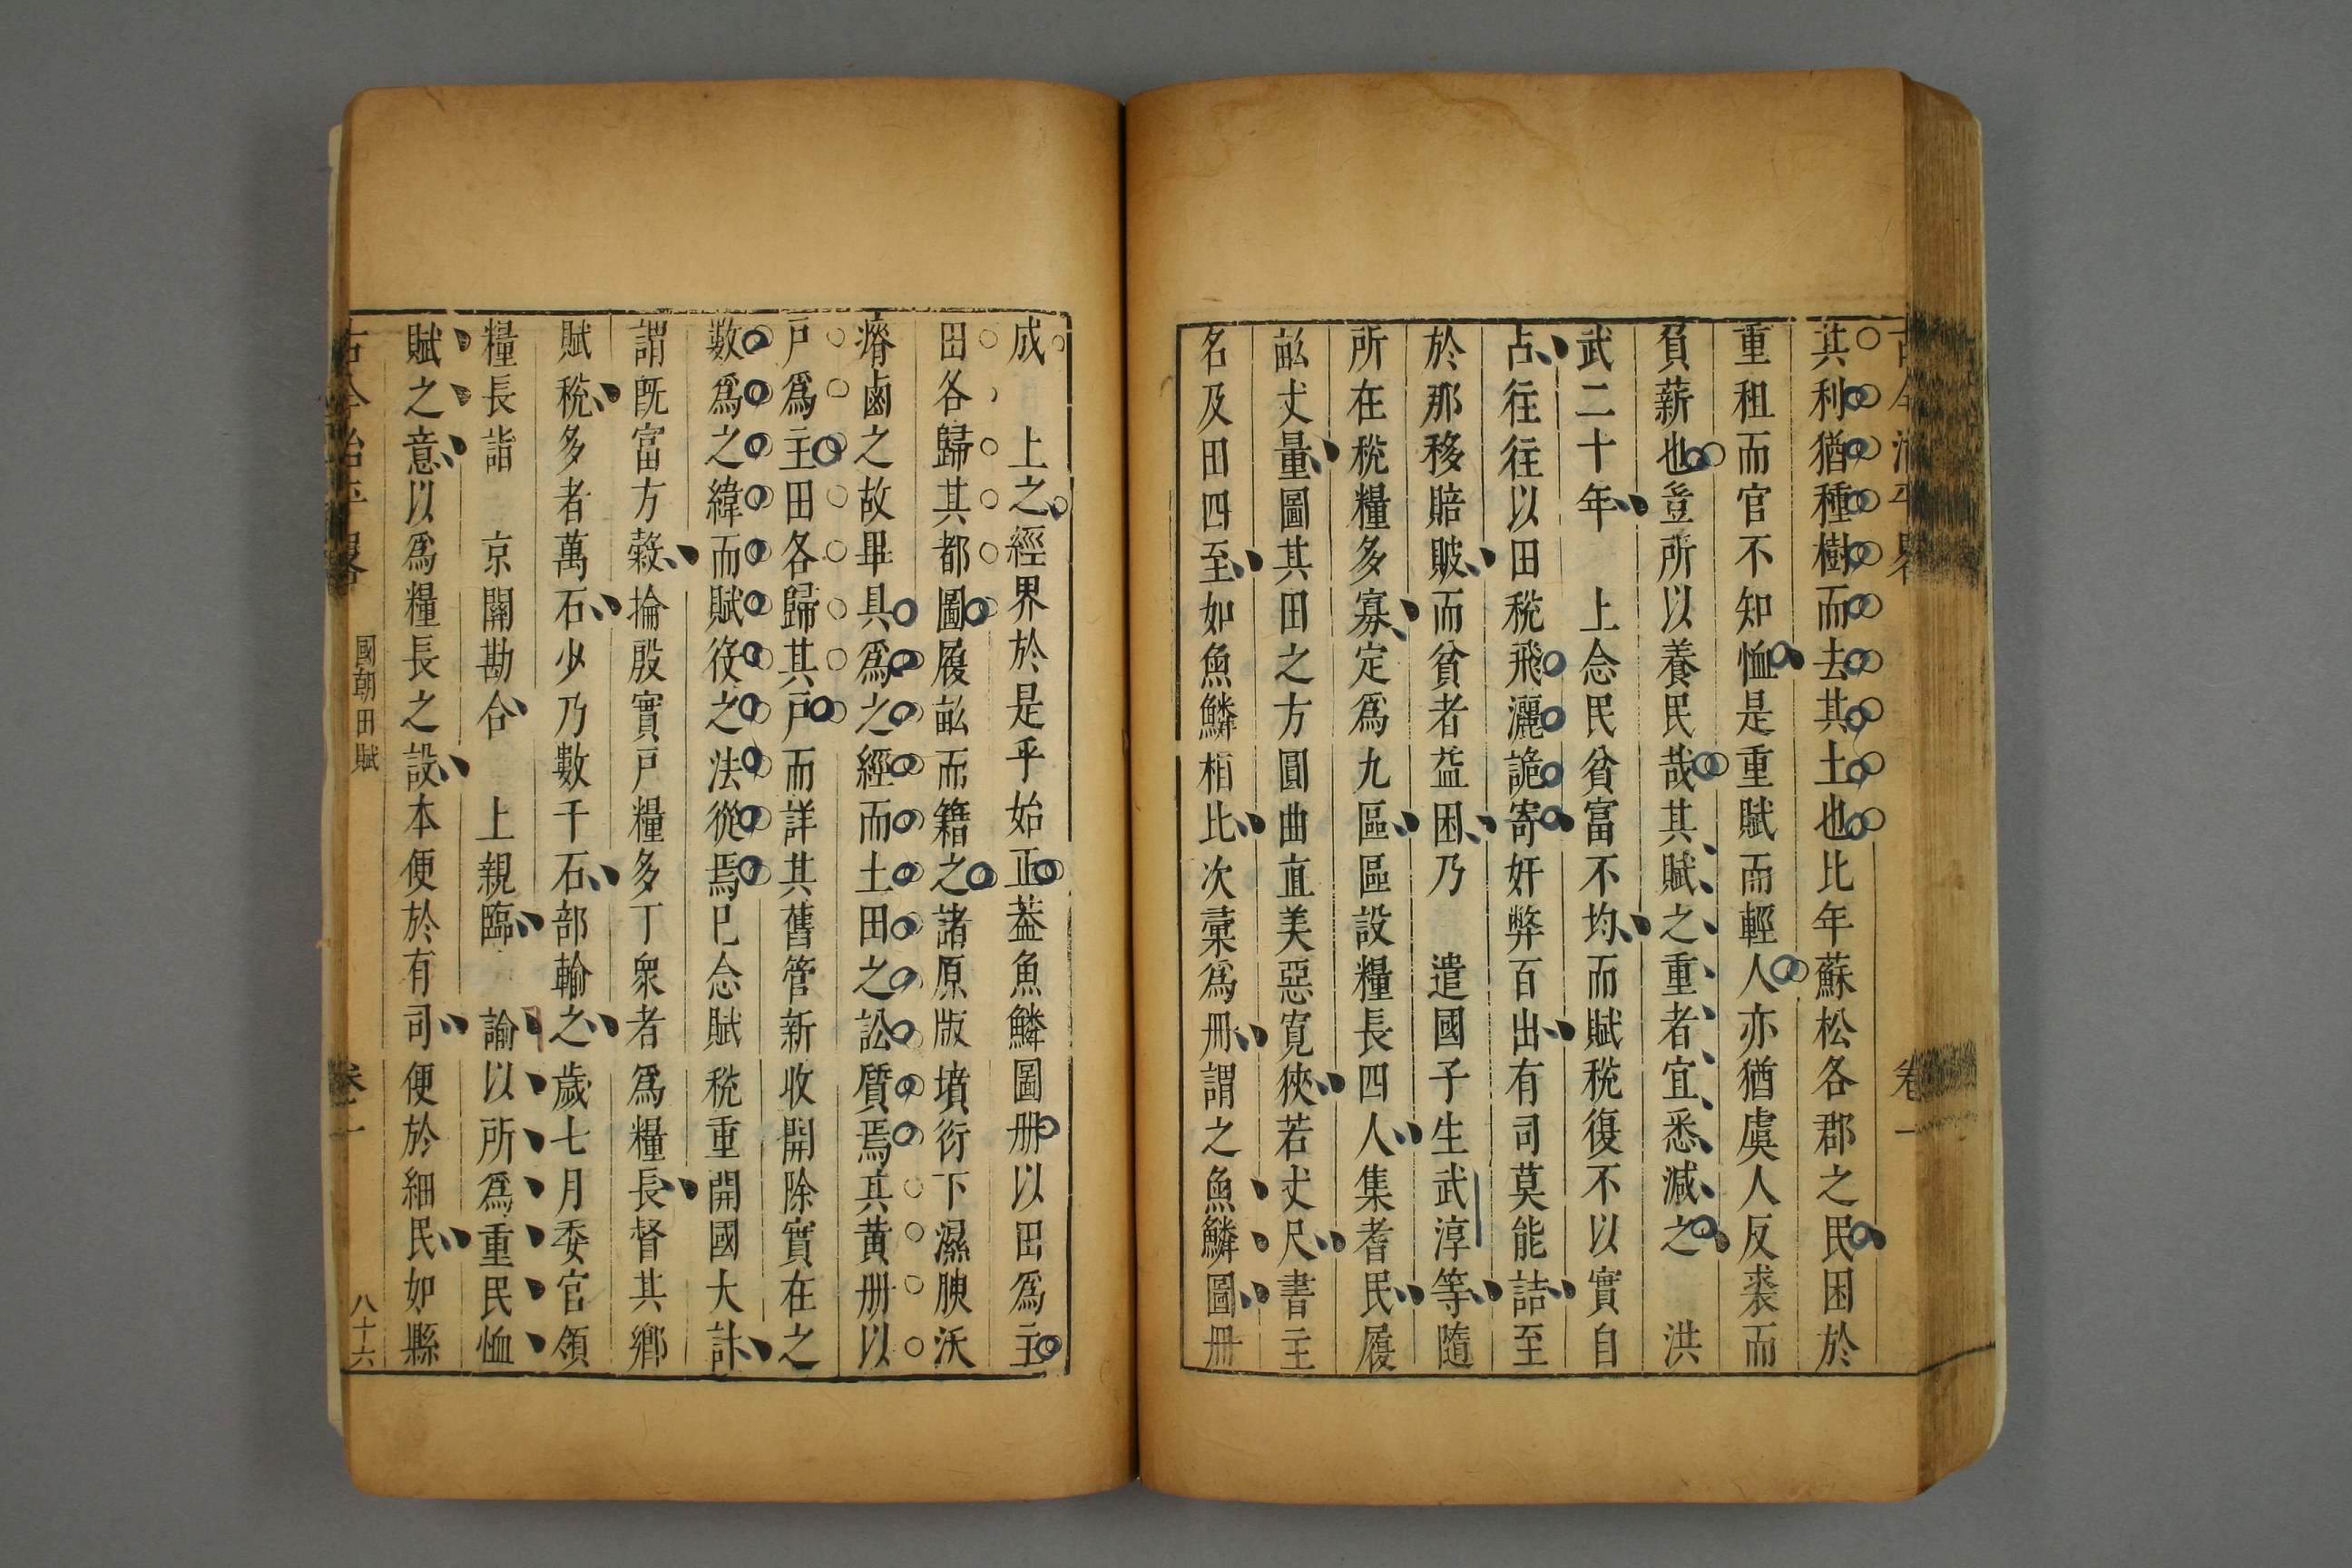 古今治平畧 卷一
其利猶種樹而去其土也比年蘇松各郡之民困於
重租而官不知恤是重賦而輕人亦猶虞人反裘而
負薪也豈所以養民哉其賦之重者宜悉減之 洪
武二十年 上念民貧富不均而賦稅復不以實自
占往往以田稅飛灑詭寄奸弊百出有司莫能詰至
於那移賠貱而貧者益困乃 遣國子生武淳等隨
所在稅糧多寡定爲九區區設糧長四人集耆民履
畝丈量圖其田之方圓曲直美惡寬狹若丈尺書主
名及田四至如魚鱗相比次彚爲冊謂之魚鱗圖冊
成 上之經界於是乎始正葢魚鱗圖冊以田爲主
田各歸其都圖履畝而籍之諸原版墳衍下濕腴沃
瘠鹵之故畢具爲之經而土田之訟質焉其黃冊以
戶爲主田各歸其戶而詳其舊管新收開除實在之
數爲之緯而賦役之法從焉巳念賦稅重開國大計
謂旣富方穀掄殷實戶糧多丁衆者爲糧長督其鄉
賦稅多者萬石少乃數千石部輸之歲七月委官領
糧長詣 京關勘合 上親臨 諭以所爲重民恤
賦之意以爲糧長之設本便於有司便於細民如縣
古今治平畧 國朝田賦 卷一 八十六